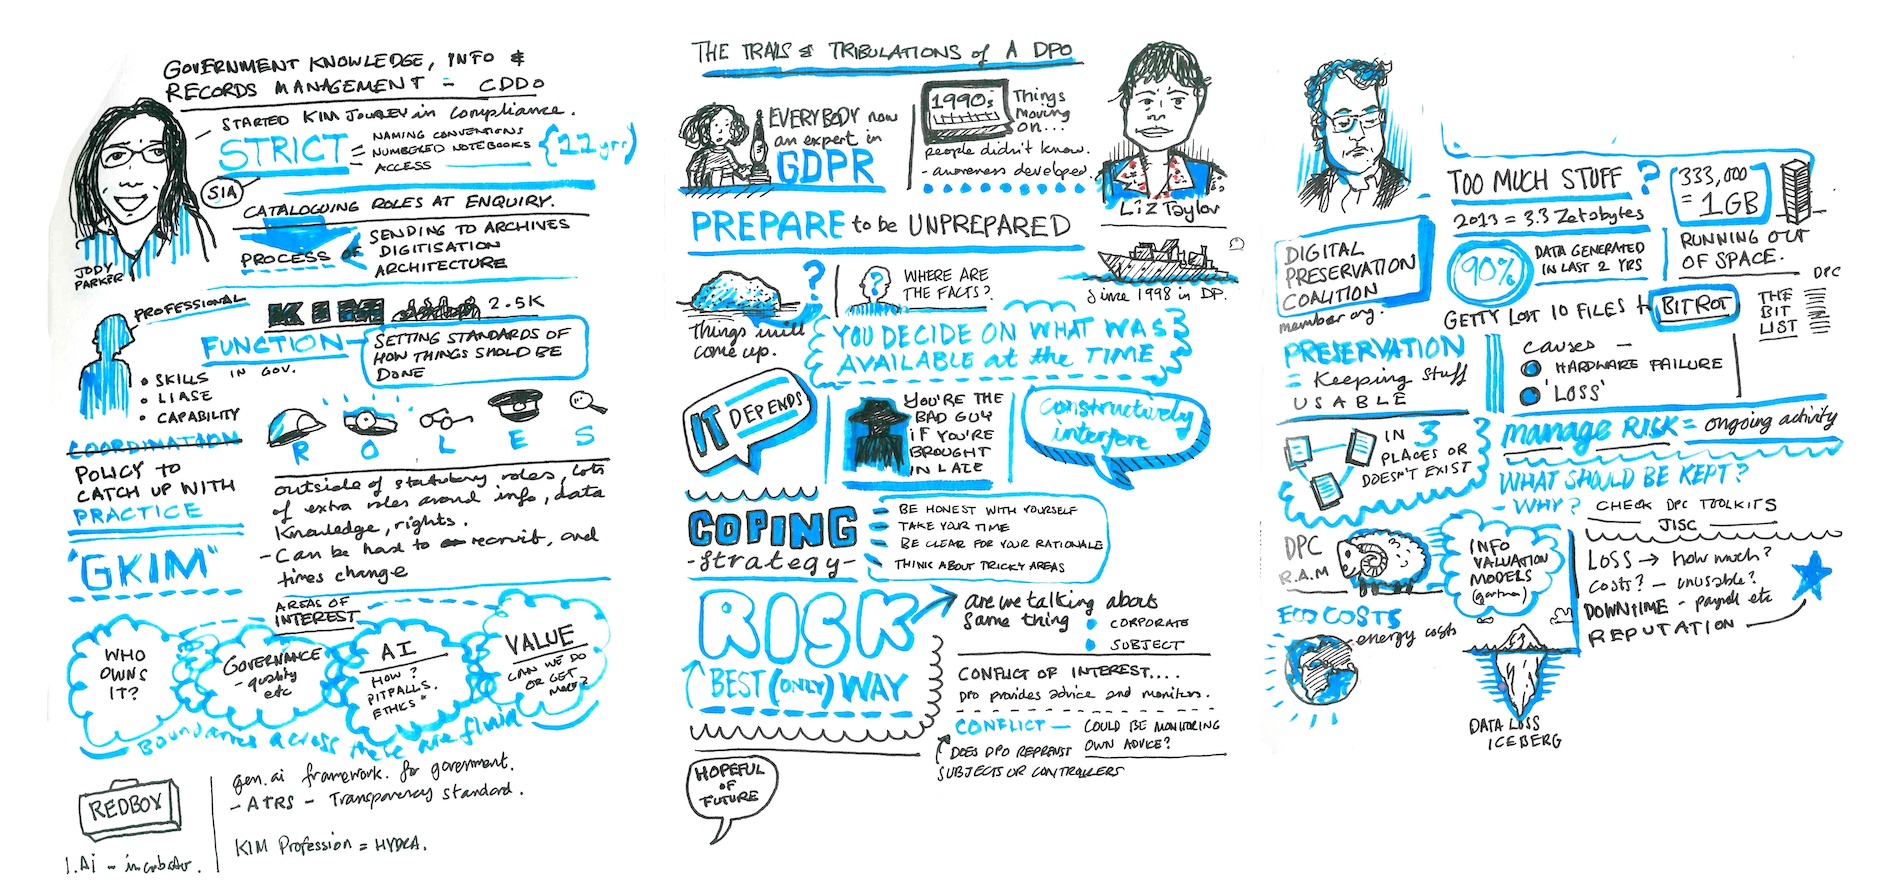 GOVERNMENT KNOWLEDGE, INFO &
RECORDS MANAGEMENT - CDDO
STARTED KIM JOURNEY in compliance.
STRICT
NAMING CONVENTIONS
NUMBERED NOTEBOOKS
ACCESS
{22 yrs}
SIA
CATALOGUING ROLES AT ENQUIRY.
PROCESS OF
SENDING TO ARCHIVES
DIGITISATION
ARCHITECTURE
JODY
PARKER
PROFESSIONAL
KIM 2.5K
FUNCTION
IN GOV.
SETTING STANDARDS OF
HOW THINGS SHOULD BE
DONE
• SKILLS
• LIASE
• CAPABILITY
ROLES
COORDINATION
POLICY TO
CATCH UP WITH
PRACTICE
"GKIM"
outside of statutory roles, lots
of extra roles around info, data
knowledge, rights.
- Can be hard to recruit, and
times change
AREAS OF
INTEREST
WHO
OWNS
IT?
GOVERNANCE
- quality
etc
AI
HOW?
PITFALLS.
ETHICS"
VALUE
CAN WE DO
OR GET
MORE?
Boundaries across these are fluid
REDBOX
I.Ai - incubator.
gen.ai framework. for government.
- ATRS - Transparency standard.
KIM Profession = HYDRA.
THE TRAILS & TRIBULATIONS of A DPO
EVERYBODY now
an expert in
GDPR
1990s
Things
moving
on...
people didn't know.
- awareness developed.
Liz Taylor
PREPARE to be UNPREPARED
Since 1998 in DP.
?
Things will
come up.
?
WHERE ARE
THE FACTS?
YOU DECIDE ON WHAT WAS
AVAILABLE at the TIME
IT DEPENDS
YOU'RE THE
BAD GUY
IF YOU'RE
BROUGHT
IN LATE
constructively
interfere
COPING
-strategy-
- BE HONEST WITH YOURSELF
- TAKE YOUR TIME
- BE CLEAR FOR YOUR RATIONALE
- THINK ABOUT TRICKY AREAS
RISK
BEST (ONLY) WAY
are we talking about
same thing
• CORPORATE
• SUBJECT
CONFLICT OF INTEREST....
DPO provides advice and monitors.
CONFLICT - COULD BE MONITORING
OWN ADVICE?
DOES DPO REPRENST
SUBJECTS OR CONTROLLERS
HOPEFUL
OF
FUTURE
DIGITAL
PRESERVATION
COALITION
member org.
TOO MUCH STUFF?
2013 = 3.3 Zetabytes
333,000
= 1GB
90%
DATA GENERATED
IN LAST 2 YRS
RUNNING OUT
OF SPACE.
GETTY LOST 10 FILES to BITROT
DPC
THE
BIT
LIST
PRESERVATION
= Keeping stuff
USABLE
causes -
HARDWARE FAILURE
'LOSS'
IN 3
PLACES OR
DOESN'T EXIST
manage RISK = ongoing activity
WHAT SHOULD BE KEPT?
- WHY? CHECK DPC TOOLKITS
JISC
DPC
R.A.M
INFO
VALUATION
MODELS
(gartner)
LOSS → how much?
COSTS? - unusable?
DOWNTIME - payroll etc
REPUTATION
ECO COSTS
energy costs
DATA LOSS
ICEBERG